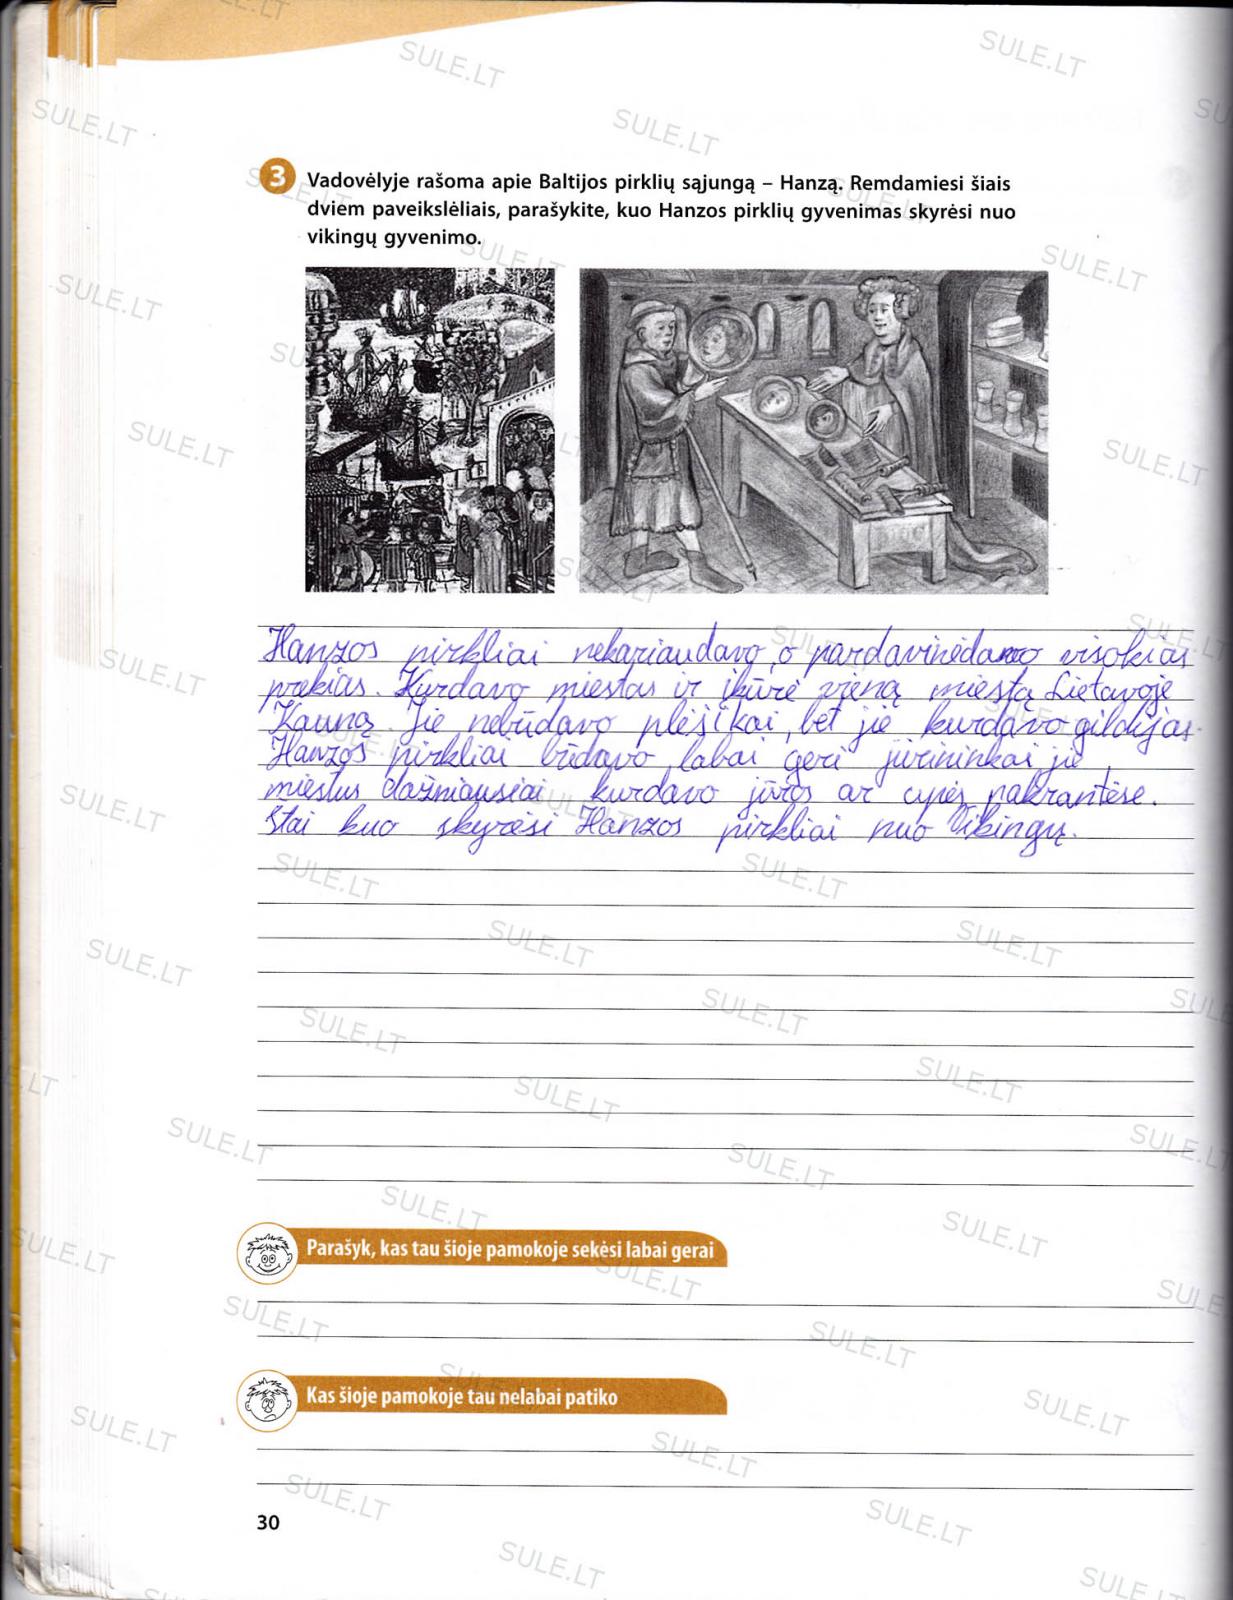 3 Vadovėlyje rašoma apie Baltijos pirklių sąjungą – Hanzą. Remdamiesi šiais
dviem paveikslėliais, parašykite, kuo Hanzos pirklių gyvenimas skyrėsi nuo
vikingų gyvenimo.
Hanzos pirkliai nekariaudavo, o pardavinėdavo visokias
prekias. Kurdavo miestas ir įkūrė vieną miestą Lietuvoje
Kauną. Jie nebūdavo plėšikai, bet jie kurdavo gildijas.
Hanzos pirkliai būdavo labai geri jūrininkai, jie
miestus dažniausiai kurdavo jūros ar upės pakrantėse.
Štai kuo skyrėsi Hanzos pirkliai nuo Vikingų.
Parašyk, kas tau šioje pamokoje sekėsi labai gerai
Kas šioje pamokoje tau nelabai patiko
30
SULE.LT